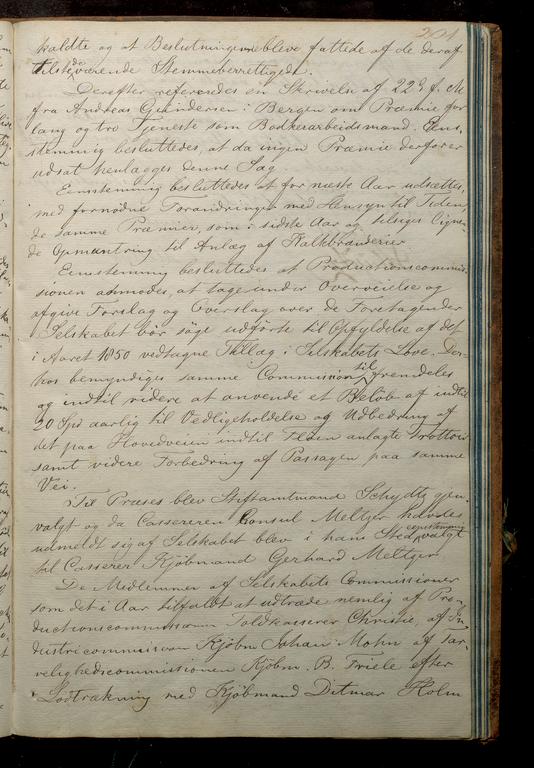 201
kaldte og at Beslutningerne bleve fattede af de deraf
tilstedeværende Stemmeberettigede.
Derefter refereredes en Skrivelse af 22de f. M.
fra Andreas Gundersen i Bergen om Præmie for
lang og tro Tjeneste som Bødkerarbeidsmand. Een-
stemmig besluttedes, at da ingen Præmie derfor er
udsat henlægges denne Sag
Eenstemmig besluttedes at for næste Aar udsættes,
med fornødne Forandringer med Hensyn til Tiden,
de samme Præmier, som i sidste Aar og tilsiges ligne-
de Opmuntring til Anlæg af Kalkbrænderier
Eenstemmig besluttedes at Productionscommis-
sionen anmodes, at tage under Overveielse og
afgive Forslag og Overslag over de Foretagender
Selskabet bør søge udførte til Opfyldelse af det
i Aaret 1850 vedtagne Tillæg i Selskabets Love. Der-
hos bemyndiges samme Commission til fremdeles
og indtil videre at anvende et Beløb af indtil
20 Spd aarlig til Vedligeholdelse og Udbedring af
det paa Hovedveien indtil Fløen anlagte Trottoir
samt videre Forbedring af Passagen paa samme
Vei.
Til Præses blev Stiftamtmand Schydtz gjen-
valgt og da Cassereren Consul Meltzer havde
udmeldt sig af Selskabet blev i hans Sted eenstemmig valgt
til Casserer Kjøbmand Gerhard Meltzer
De Medlemmer af Selskabets Commissioner
som det i Aar tilfaldt at udtræde nemlig af Pro-
ductionscommissionen Toldkasserer Christie, af In-
dustricommissionen Kjøbm Johan Mohn af Tar-
velighedscommissionen Kjøbm. B. Friele efter
Lodtrækning med Kjøbmand Ditmar Holm